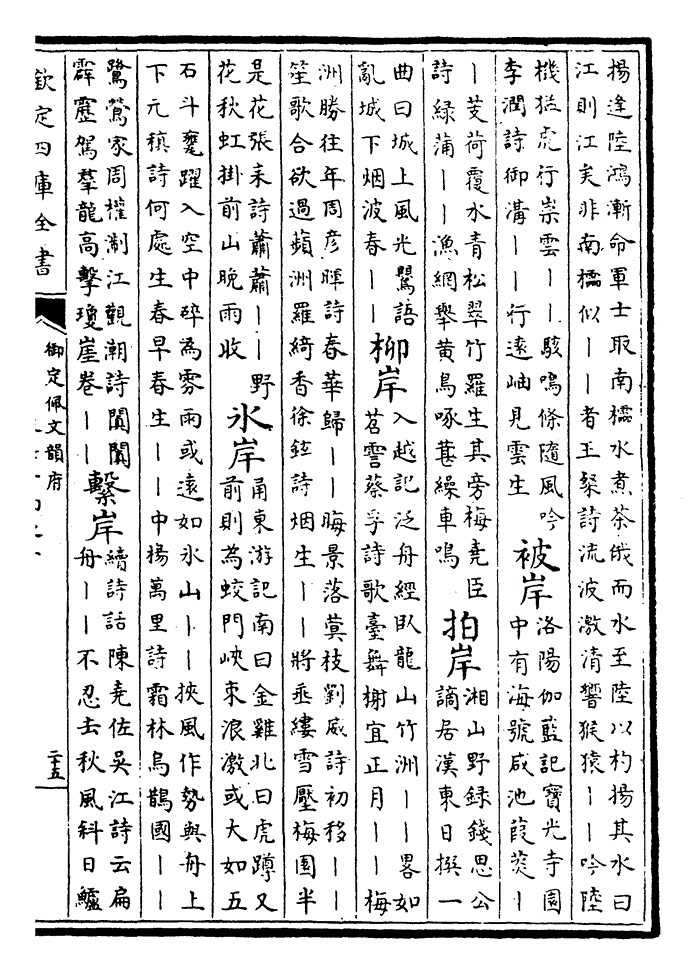 揚逹陸鴻漸命軍士取南櫺水煮茶俄而水至陸以杓揚其水曰
江則江矣非南櫺似丨丨者王粲詩流波激清響猴猿丨丨吟陸
機猛虎行崇雲丨丨駭鳴條隨風吟
李潤詩御溝丨丨行遠岫見雲生
被岸
洛陽伽藍記寶光寺園
中有海號咸池葭菼丨
丨芰荷覆水青松翠竹羅生其旁梅堯臣
詩綠蒲丨丨漁網舉黄鳥啄葚繰車鳴
拍岸
湘山野録錢思公
謫居漢東日撰一
曲曰城上風光鸎語
亂城下烟波春丨丨
柳岸
入越記泛舟經卧龍山竹洲丨丨畧如
苕霅蔡孚詩歌臺舞榭宜正月丨丨梅
洲勝往年周彦暉詩春華歸丨丨晦景落蓂枝劉威詩初移丨丨
笙歌合欲過蘋洲羅綺香徐鉉詩烟生丨丨將垂縷雪壓梅園半
是花張耒詩蕭蕭丨丨野
花秋虹掛前山晚雨收
氷岸
甬東游記南曰金雞北曰虎蹲又
前則為蛟門峽束浪激或大如五
石斗甕躍入空中碎為雰雨或遠如氷山丨丨挾風作勢與舟上
下元稹詩何處生春早春生丨丨中楊萬里詩霜林烏鵲國丨丨
鷺鶯家周權浙江觀潮詩闐闐
霹靂駕羣龍高擊瓊崖卷丨丨
繫岸
續詩話陳堯佐吳江詩云扁
舟丨丨不忍去秋風科日鱸
欽定四庫全書
御定佩文韻府
二五